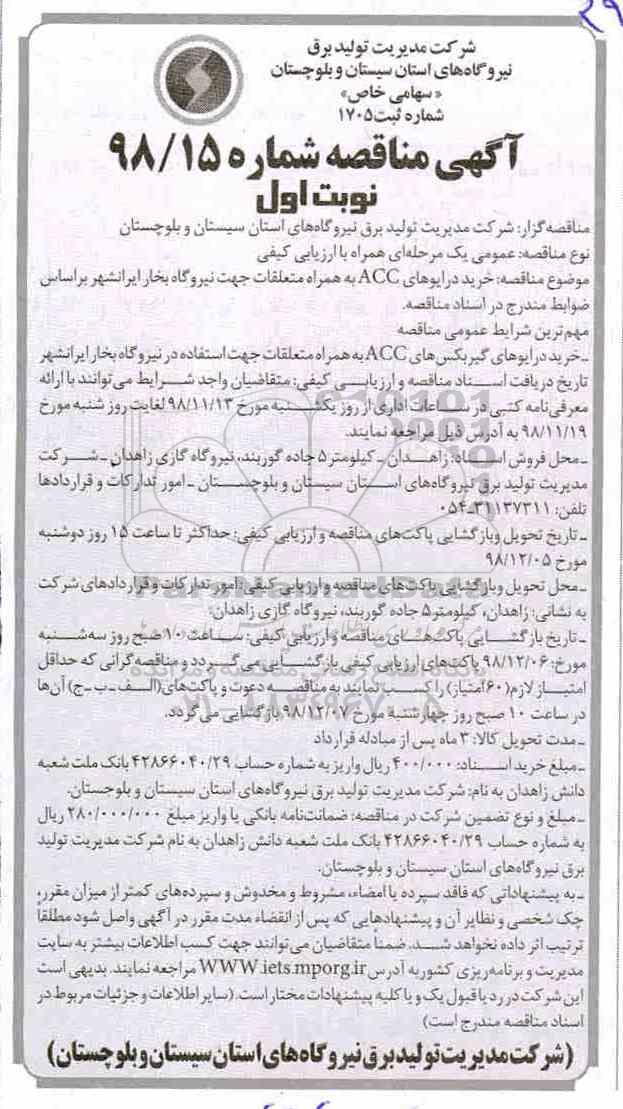 شرکت مدیریت تولید برق
نیروگاه‌های استان سیستان و بلوچستان
«سهامی خاص»
شماره ثبت ۱۷۰۵
آگهی مناقصه شماره ۹۸/۱۵
نوبت اول
مناقصه‌گزار: شرکت مدیریت تولید برق نیروگاه‌های استان سیستان و بلوچستان
نوع مناقصه: عمومی یک مرحله‌ای همراه با ارزیابی کیفی
موضوع مناقصه: خرید درایوهای ACC به همراه متعلقات جهت نیروگاه بخار ایرانشهر براساس
ضوابط مندرج در اسناد مناقصه.
مهم‌ترین شرایط عمومی مناقصه
ـ خرید درایوهای گیربکس‌های ACC به همراه متعلقات جهت استفاده در نیروگاه بخار ایرانشهر
تاریخ دریافت اسناد مناقصه و ارزیابی کیفی: متقاضیان واجد شرایط می‌توانند با ارائه
معرفی‌نامه کتبی در ساعات اداری از روز یکشنبه مورخ ۹۸/۱۱/۱۳ لغایت روز شنبه مورخ
۹۸/۱۱/۱۹ به آدرس ذیل مراجعه نمایند.
ـ محل فروش اسناد: زاهدان ـ کیلومتر ۵ جاده گوربند، نیروگاه گازی زاهدان ـ شرکت
مدیریت تولید برق نیروگاه‌های استان سیستان و بلوچستان ـ امور تدارکات و قراردادها
تلفن: ۳۱۱۳۷۳۱۱ـ۰۵۴
ـ تاریخ تحویل وبازگشایی پاکت‌های مناقصه و ارزیابی کیفی: حداکثر تا ساعت ۱۵ روز دوشنبه
مورخ ۹۸/۱۲/۰۵
ـ محل تحویل وبازگشایی پاکت‌های مناقصه و ارزیابی کیفی: امور تدارکات و قراردادهای شرکت
به نشانی: زاهدان، کیلومتر ۵ جاده گوربند، نیروگاه گازی زاهدان.
ـ تاریخ بازگشایی پاکت‌های مناقصه و ارزیابی کیفی: ساعت ۱۰ صبح روز سه‌شنبه
مورخ: ۹۸/۱۲/۰۶ پاکت‌های ارزیابی کیفی بازگشایی می‌گردد و مناقصه‌گرانی که حداقل
امتیاز لازم (۶۰ امتیاز) را کسب نمایند به مناقصه دعوت و پاکت‌های (الف ـ ب ـ ج) آن‌ها
در ساعت ۱۰ صبح روز چهارشنبه مورخ ۹۸/۱۲/۰۷ بازگشایی می‌گردد.
ـ مدت تحویل کالا: ۳ ماه پس از مبادله قرارداد
ـ مبلغ خرید اسناد: ۴۰۰/۰۰۰ ریال واریز به شماره حساب ۴۲۸۶۶۰۴۰/۲۹ بانک ملت شعبه
دانش زاهدان به نام: شرکت مدیریت تولید برق نیروگاه‌های استان سیستان و بلوچستان.
ـ مبلغ و نوع تضمین شرکت در مناقصه: ضمانت‌نامه بانکی یا واریز مبلغ ۲۸۰/۰۰۰/۰۰۰ ریال
به شماره حساب ۴۲۸۶۶۰۴۰/۲۹ بانک ملت شعبه دانش زاهدان به نام شرکت مدیریت تولید
برق نیروگاه‌های استان سیستان و بلوچستان.
ـ به پیشنهاداتی که فاقد سپرده یا امضاء، مشروط و مخدوش و سپرده‌های کمتر از میزان مقرر،
چک شخصی و نظایر آن و پیشنهادهایی که پس از انقضاء مدت مقرر در آگهی واصل شود مطلقاً
ترتیب اثر داده نخواهد شد. ضمناً متقاضیان می‌توانند جهت کسب اطلاعات بیشتر به سایت
مدیریت و برنامه‌ریزی کشور به آدرس WWW.iets.mporg.ir مراجعه نمایند. بدیهی است
این شرکت در رد یا قبول یک و یا کلیه پیشنهادات مختار است. (سایر اطلاعات و جزئیات مربوط در
اسناد مناقصه مندرج است)
(شرکت مدیریت تولید برق نیروگاه‌های استان سیستان و بلوچستان)